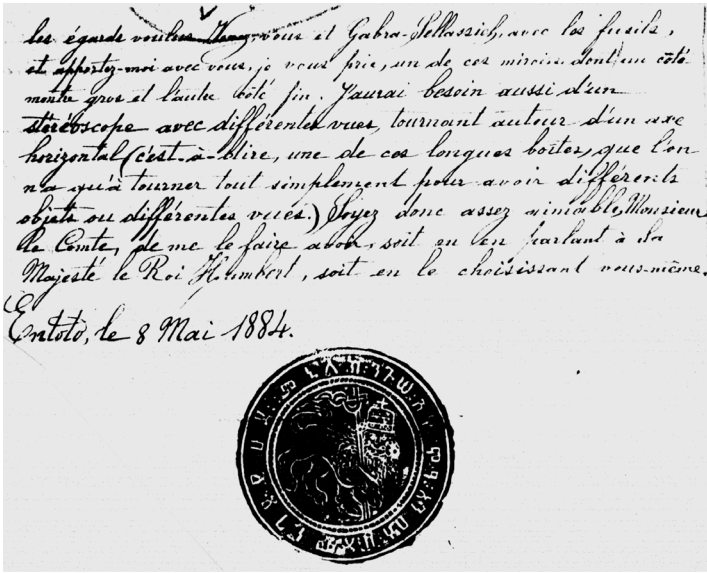 les égards voulus Venez-vous et Gabra-Sellassieh, avec les fusils,
et apportez-moi avec vous, je vous prie, un de ces miroirs dont un côté
montre gros et l'autre côté fin. J'aurai besoin aussi d'un
stéréoscope avec différentes vues, tournant autour d'un axe
horizontal (c'est-à-dire, une de ces longues boîtes, que l'on
n'a qu'à tourner tout simplement pour avoir différents
objets ou différentes vues.) Soyez donc assez aimable, Monsieur
le Comte, de me le faire avoir, soit en en parlant à Sa
Majesté le Roi Humbert, soit en le choisissant vous-même.
Entoto, le 8 Mai 1884.